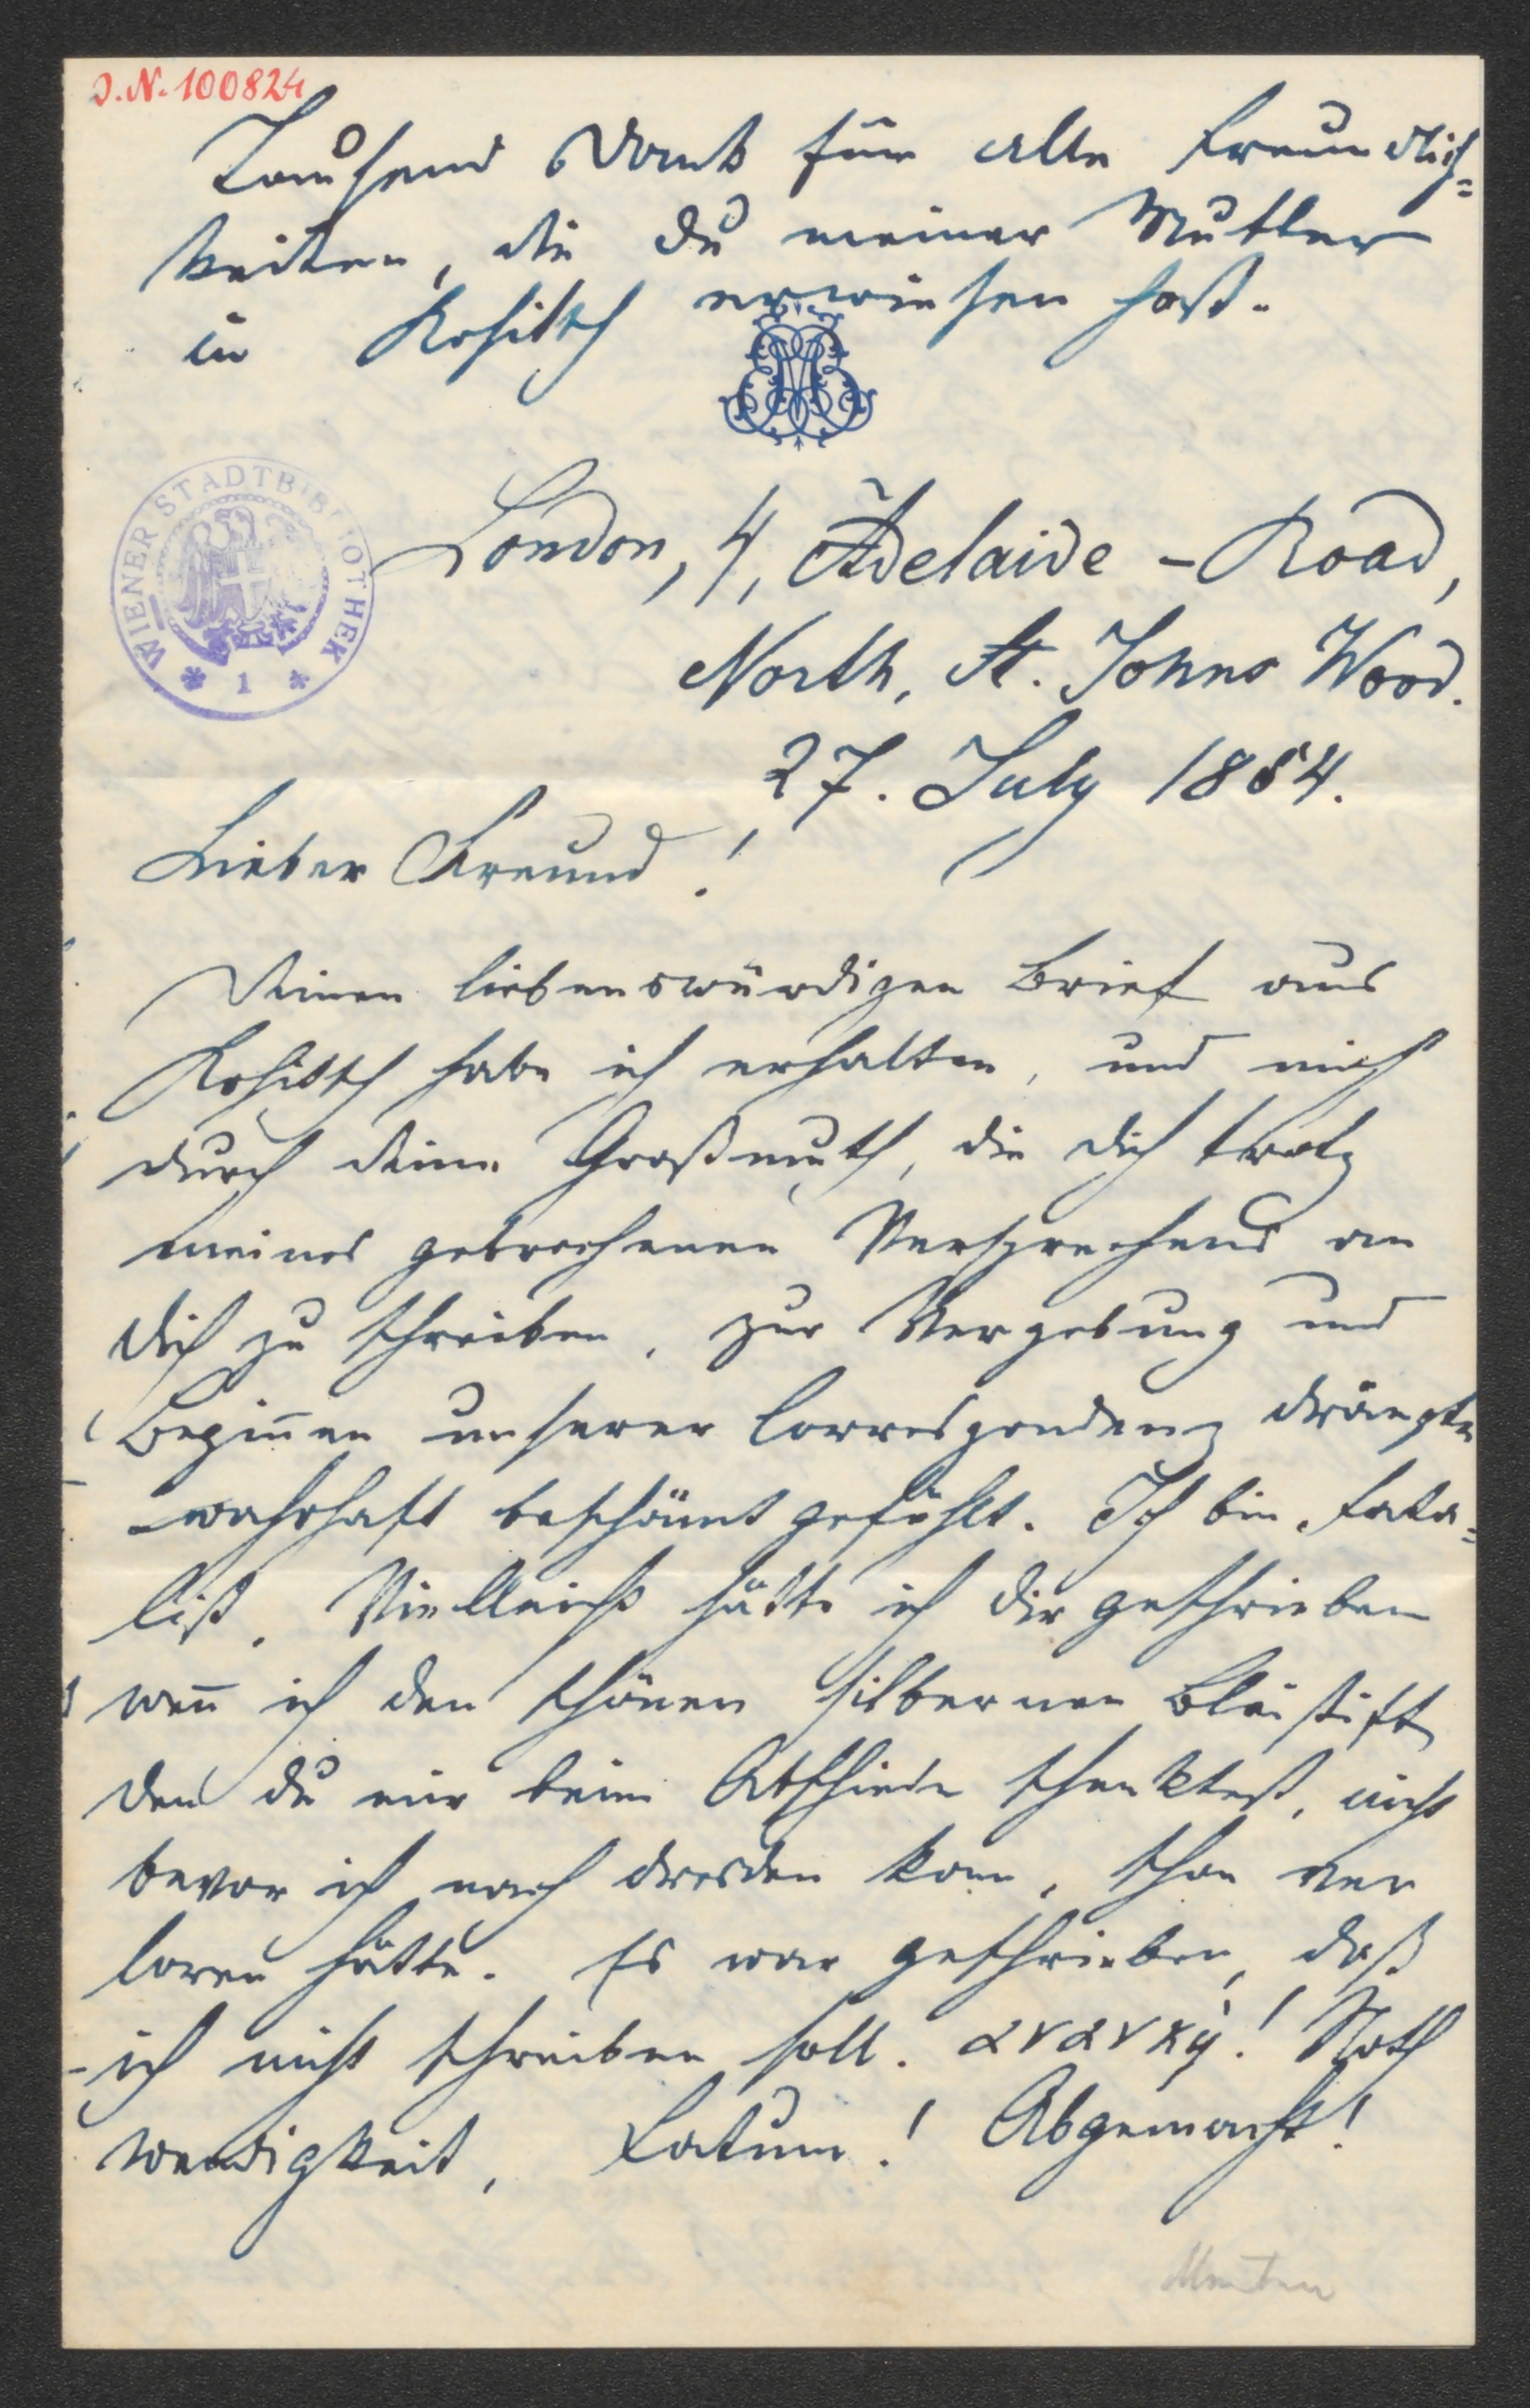 J.N. 100824
Tausend Dank für alle Freundlich=
keiten, die du meiner Mutter
in Rohitsch erwiesen hast.
WIENER STADTBIBLIOTHEK
* 1 *
London, 4, Adelaide-Road,
North, St. Johns Wood.
27. July 1884.
Lieber Freund!
Deinen liebenswürdigen Brief aus
Rohitsch habe ich erhalten, und mich
durch deine Großmuth, die dich trotz
meines gebrochenen Versprechens an
dich zu schreiben, zur Vergebung und
Begin̅en unserer Correspondenz drängte
wahrhaft beschämt gefühlt. Ich bin Fata=
list. Vielleicht hätte ich dir geschrieben
wen̅ ich den schönen silbernen Bleistift
den du mir beim Abschiede schenktest, nicht
bevor ich nach Dresden kam, schon ver
loren hätte. Es war geschrieben, daß
ich nicht schreiben soll. ανανκή! Noth
wendigkeit, Fatum! Abgemacht!